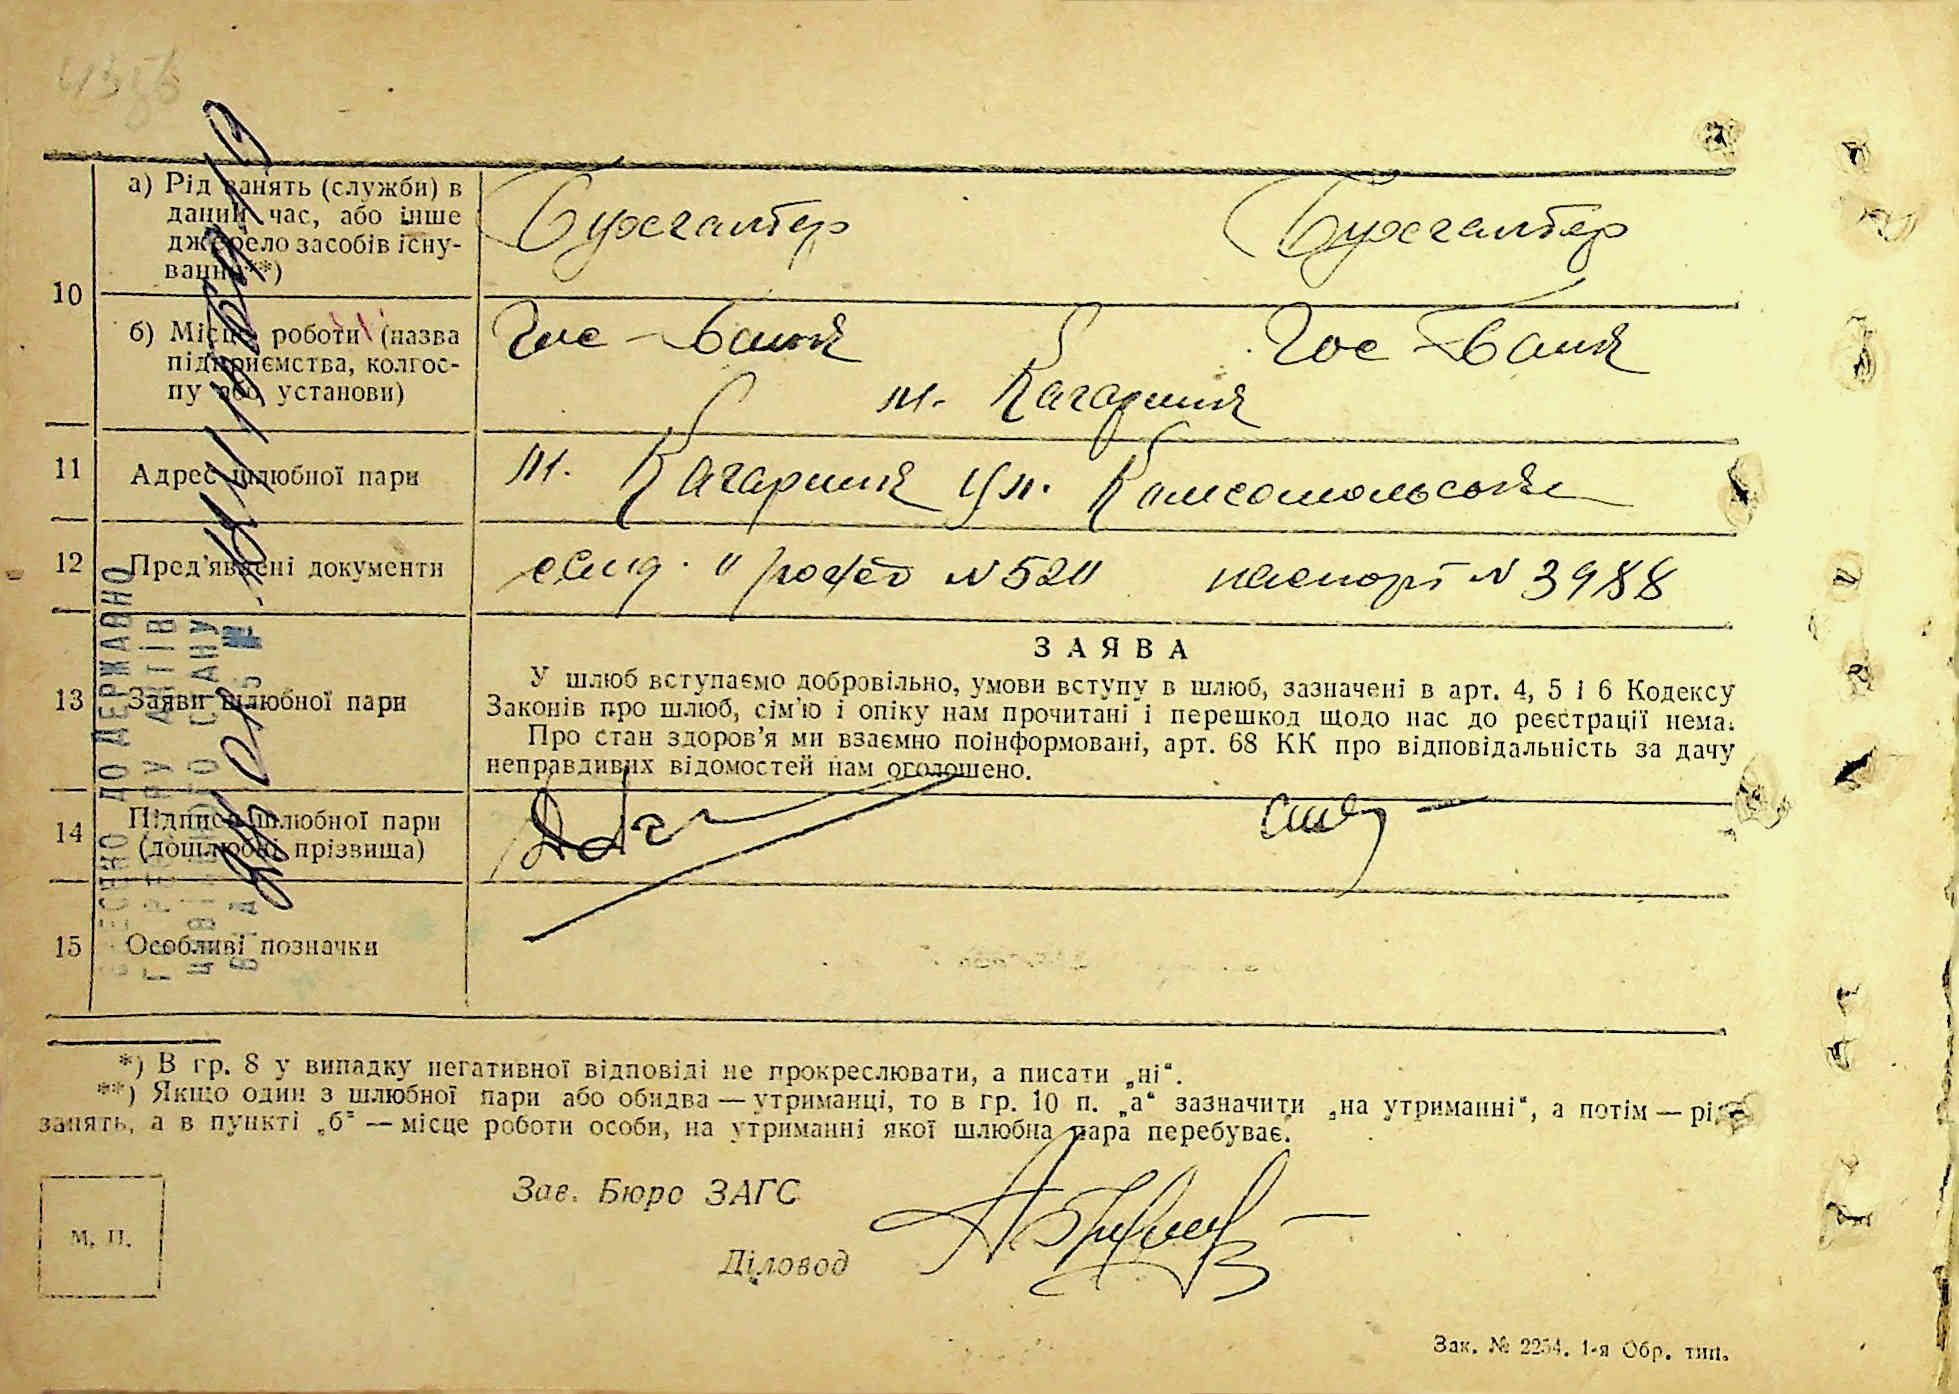 10
а) Рід занять (служби) в
даний час, або інше
джерело засобів існу-
вання**)
Бухгалтер Бухгалтер
б) Місце роботи (назва
підприємства, колгос-
пу або установи)
Гос-Банк Гос-Банк
м. Кагарлик
11 Адрес шлюбної пари
м. Кагарлик ул. Комсомольська
12 Пред'явлені документи
паспорт № 3988
13 Заяви шлюбної пари
ЗАЯВА
У шлюб вступаємо добровільно, умови вступу в шлюб, зазначені в арт. 4, 5 і 6 Кодексу
Законів про шлюб, сім'ю і опіку нам прочитані і перешкод щодо нас до реєстрації нема.
Про стан здоров'я ми взаємно поінформовані, арт. 68 КК про відповідальність за дачу
неправдивих відомостей нам оголошено.
14 Підписи шлюбної пари
(дошлюбні прізвища)
15 Особливі позначки
*) В гр. 8 у випадку негативної відповіді не прокреслювати, а писати „ні“.
**) Якщо один з шлюбної пари або обидва — утриманці, то в гр. 10 п. „а“ зазначити „на утриманні“, а потім — рід
занять, а в пункті „б“ — місце роботи особи, на утриманні якої шлюбна пара перебуває.
Зав. Бюро ЗАГС
Діловод
М. П.
Зак. № 2254. 1-я Обр. тип.